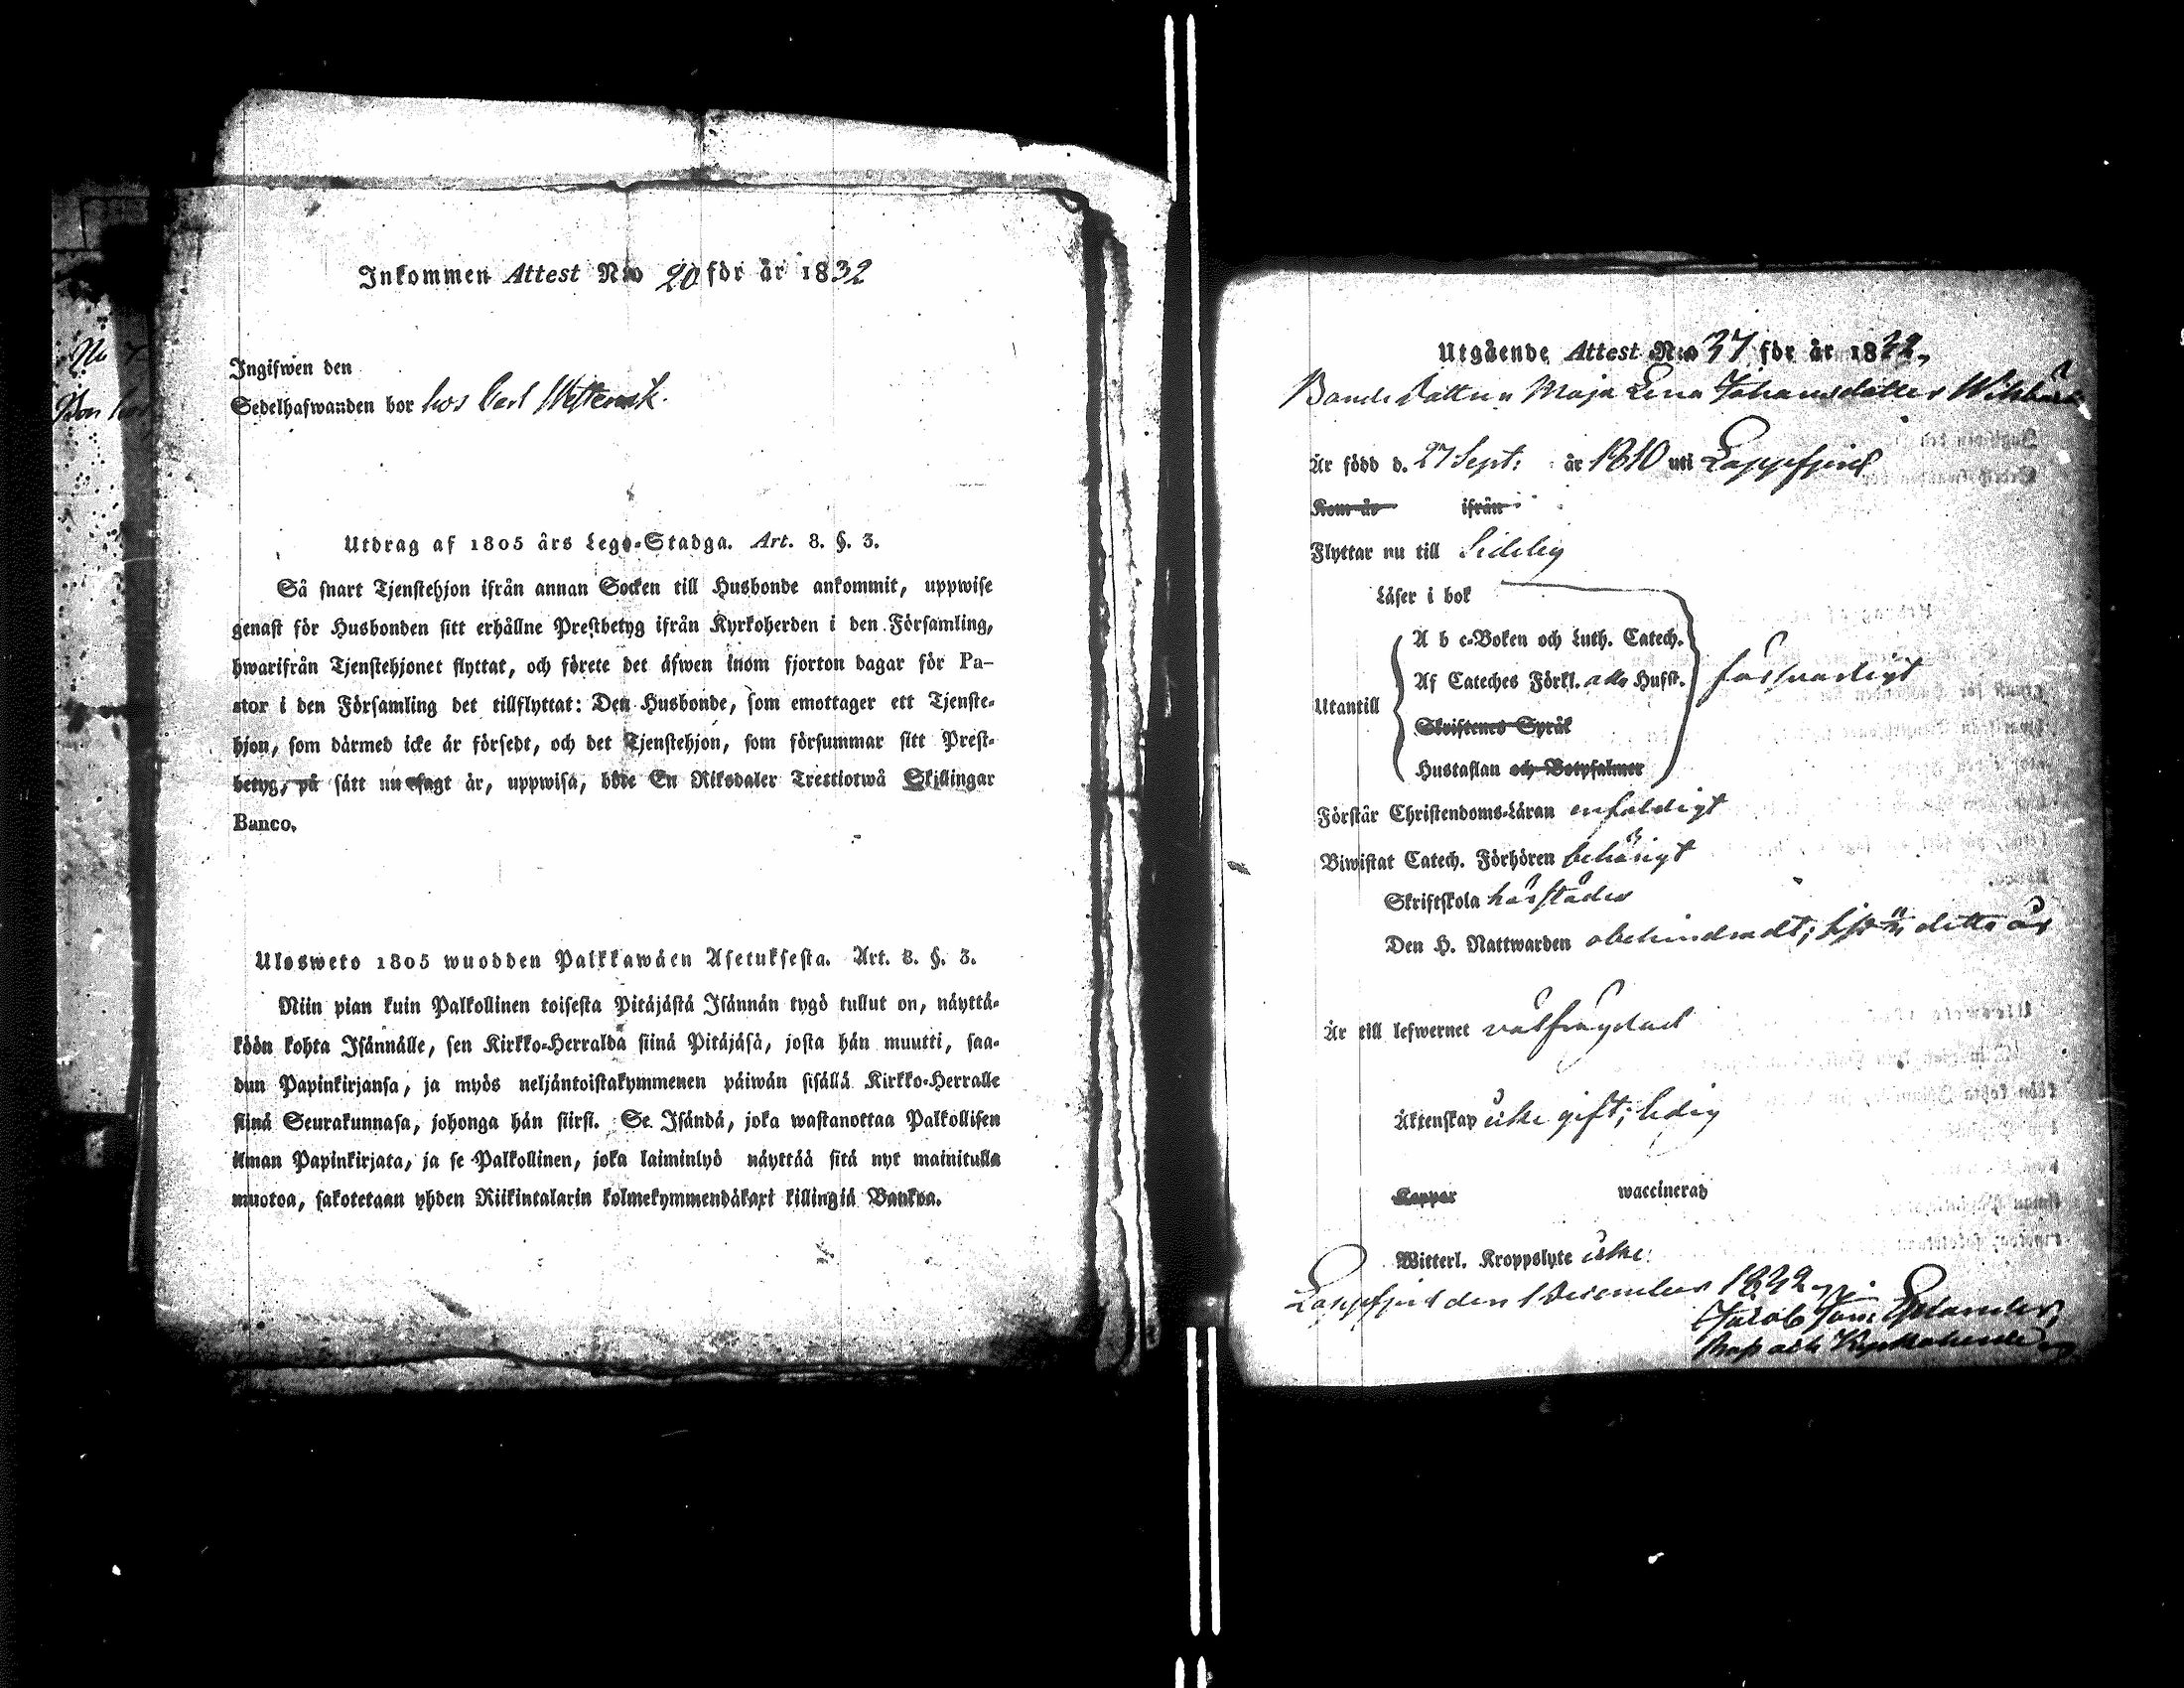 Inkommen Attest N:o 20 för år 1832
Ingifwen den
Sedelhafwanden bor hos Carl
Utdrag af 1805 års Lego-Stadga. Art. 8. §. 3.
Så snart Tjenstehjon ifrån annan Socken till Husbonde ankommit, uppwise
genast för Husbonden sitt erhållne Prestbetyg ifrån Kyrkoherden i den Församling,
hwarifrån Tjenstehjonet flyttat, och förete det äfwen inom fjorton dagar för Pa-
stor i den Församling det tillflyttat: Den Husbonde, som emottager ett Tjenste-
hjon, som därmed icke är försedt, och det Tjenstehjon, som försummar sitt Prest-
betyg, på sätt nu sagt är, uppwisa, böte En Riksdaler Trettiotwå Skillingar
Banco.
Ulosweto 1805 wuodden Palkkawäen Asetuksesta. Art. 8. §. 3.
Niin pian kuin Palkollinen toisesta Pitäjästä Isännän tygö tullut on, näyttä-
köön kohta Isännälle, sen Kirkko-Herralda siinä Pitäjäsä, josta hän muutti, saa-
dun Papinkirjansa, ja myös neljäntoistakymmenen päiwän sisällä Kirkko-Herralle
siinä Seurakunnasa, johonga hän siirsi. Se Isändä, joka wastanottaa Palkollisen
ilman Papinkirjata, ja se Palkollinen, joka laiminlyö näyttää sitä nyt mainitulla
muotoa, sakotetaan yhden Riikintalarin kolmekymmendäkaxi killingiä Bankoa.
Utgående Attest N:o 37 för år 1832,
Bonde Dottren Maja Lena Johansdotter
År född d. 27 Sept: år 1810 uti Lappfjerd
Kom år ifrån
Flyttar nu till Sideby
Läser i bok
A b c-Boken och Luth. Catech.
Af Cateches Förkl. alla Hufst. försvarligt
Utantill
Skriftenes Språk
Hustaflan och Botpsalmer
Förstår Christendoms-Läran enfaldigt
Biwistat Catech. Förhören behörigt
Skriftskola härstädes
Den H. Nattwarden obehindradt; detta år
År till lefwernet välfrägdad
Äktenskap icke gift; ledig
Koppor waccinerad
Witterl. Kroppslyte icke.
Lappfjerd den 1 December 1832
Jacob
Prost och Kyrkoherde